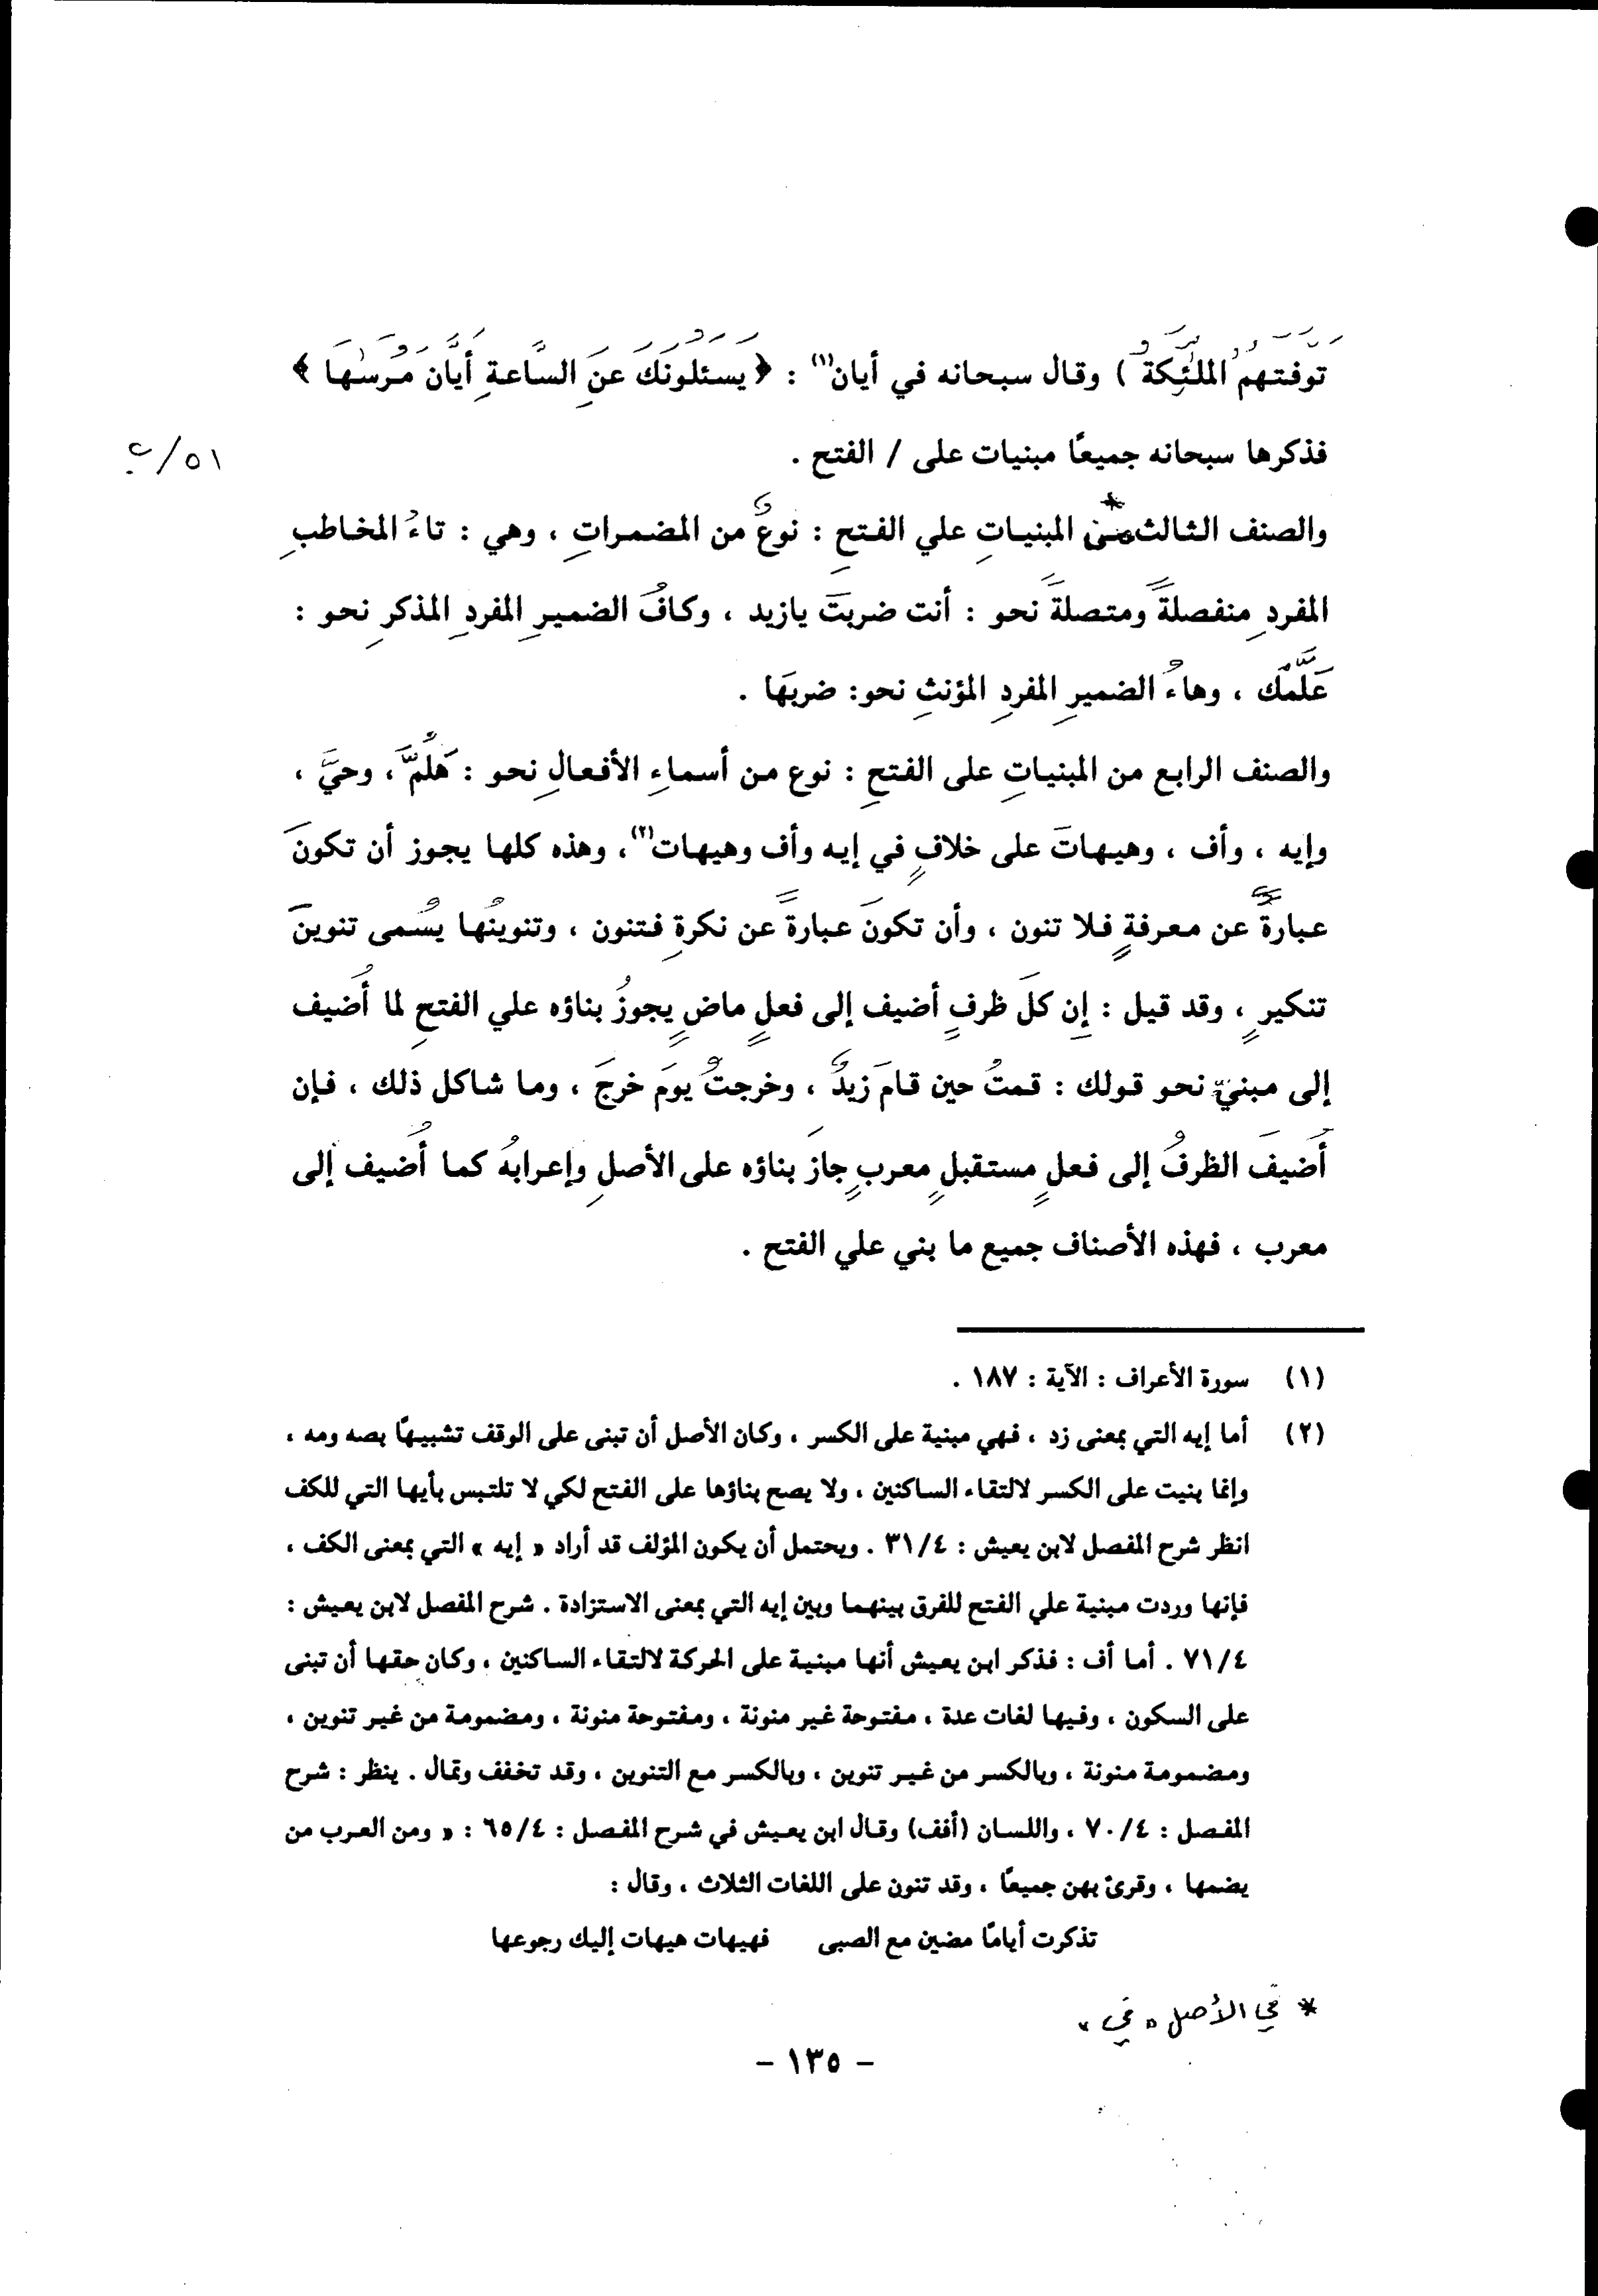 تَوَفَّتْهُمُ الملَٰئِكَةُ ) وقال سبحانه في أيان(١) : ﴿ يَسْئَلُونَكَ عَنِ السَّاعةِ أَيَّانَ مُرْسَٰهَا ﴾
فذكرها سبحانه جميعًا مبنيات على / الفتح .
٥١/ب
والصنف الثالث من* المبنياتِ علي الفتحِ : نوعٌ من المضمراتِ ، وهي : تاءُ المخاطبِ
المفردِ منفصلةً ومتصلةً نحو : أنت ضربتَ يازيد ، وكافُ الضميرِ المفردِ المذكرِ نحو :
عَلَّمَكَ ، وهاءُ الضميرِ المفردِ المؤنثِ نحو: ضربَها .
والصنف الرابع من المبنياتِ على الفتحِ : نوع من أسماءِ الأفعالِ نحو : هَلُمَّ ، وحيَّ ،
وإيه ، وأف ، وهيهاتَ على خلافٍ في إيه وأف وهيهات(٢) ، وهذه كلها يجوز أن تكونَ
عبارةً عن معرفةٍ فلا تنون ، وأن تكونَ عبارةً عن نكرةِ فتنون ، وتنوينُها يسُمى تنوينَ
تنكيرٍ ، وقد قيل : إن كلَ ظرفٍ أضيف إلى فعلٍ ماضٍ يجوزُ بناؤه علي الفتحِ لما أُضيف
إلى مبنيّ نحو قولك : قمتُ حين قامَ زيدٌ ، وخرجتُ يومَ خرجَ ، وما شاكل ذلك ، فإن
أُضيفَ الظرفُ إلى فعلٍ مستقبلٍ معربٍ جازَ بناؤه على الأصلِ وإعرابهُ كما أُضيف إلى
معرب ، فهذه الأصناف جميع ما بني علي الفتح .
(١) سورة الأعراف : الآية : ١٨٧ .
(٢) أما إيه التي بمعنى زد ، فهي مبنية على الكسر ، وكان الأصل أن تبنى على الوقف تشبيهًا بصه ومه ،
وإنما بنيت على الكسر لالتقاء الساكنين ، ولا يصح بناؤها على الفتح لكي لا تلتبس بأيها التي للكف
انظر شرح المفصل لابن يعيش : ٣١/٤ . ويحتمل أن يكون المؤلف قد أراد « إيه » التي بمعنى الكف ،
فإنها وردت مبنية علي الفتح للفرق بينهما وبين إيه التي بمعنى الاستزادة . شرح المفصل لابن يعيش :
٧١/٤ . أما أف : فذكر ابن يعيش أنها مبنية على الحركة لالتقاء الساكنين ، وكان حقها أن تبنى
على السكون ، وفيها لغات عدة ، مفتوحة غير منونة ، ومفتوحة منونة ، ومضمومة من غير تنوين ،
ومضمومة منونة ، وبالكسر من غير تنوين ، وبالكسر مع التنوين ، وقد تخفف وتمال . ينظر : شرح
المفصل : ٧٠/٤ ، واللسان (أفف) وقال ابن يعيش في شرح المفصل : ٦٥/٤ : « ومن العرب من
يضمها ، وقرئ بهن جميعًا ، وقد تنون على اللغات الثلاث ، وقال :
تذكرت أيامًا مضين مع الصبى فهيهات هيهات إليك رجوعها
* في الأصل « في »
- ١٣٥ -